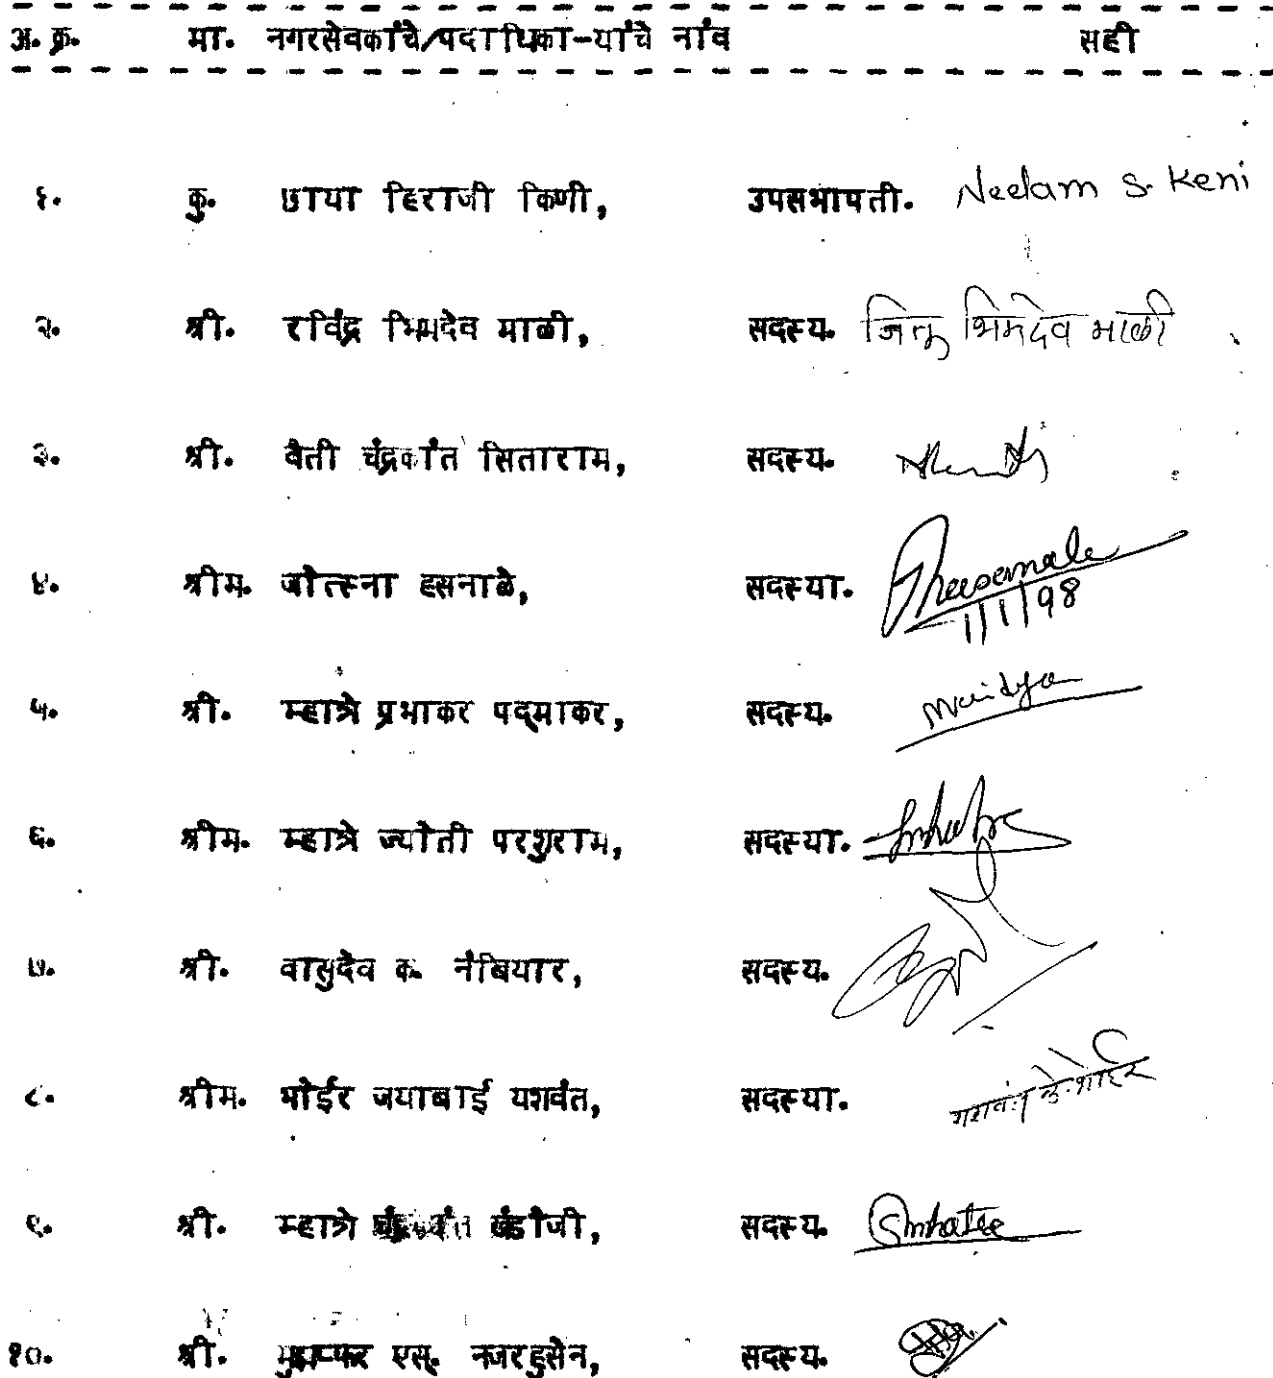 अ. क्र. मा. नगरसेवकांचे/पदाधिका-यांचे नांव सही
१. कु. छाया हिराजी किणी, उपसभापती. Neelam S. Keni
२. श्री. रविंद्र भिमदेव माळी, सदस्य. भिमदेव माळी
३. श्री. वैती चंद्रकांत सिताराम, सदस्य.
४. श्रीम. जोत्स्ना हसनाळे, सदस्या. 1/1/98
५. श्री. म्हात्रे प्रभाकर पद्माकर, सदस्य.
६. श्रीम. म्हात्रे ज्योती परशुराम, सदस्या.
७. श्री. वासुदेव क. नंबियार, सदस्य.
८. श्रीम. भोईर जयाबाई यशवंत, सदस्या.
९. श्री. म्हात्रे खंडोजी, सदस्य. Smhatre
१०. श्री. एस. नजरहुसेन, सदस्य.